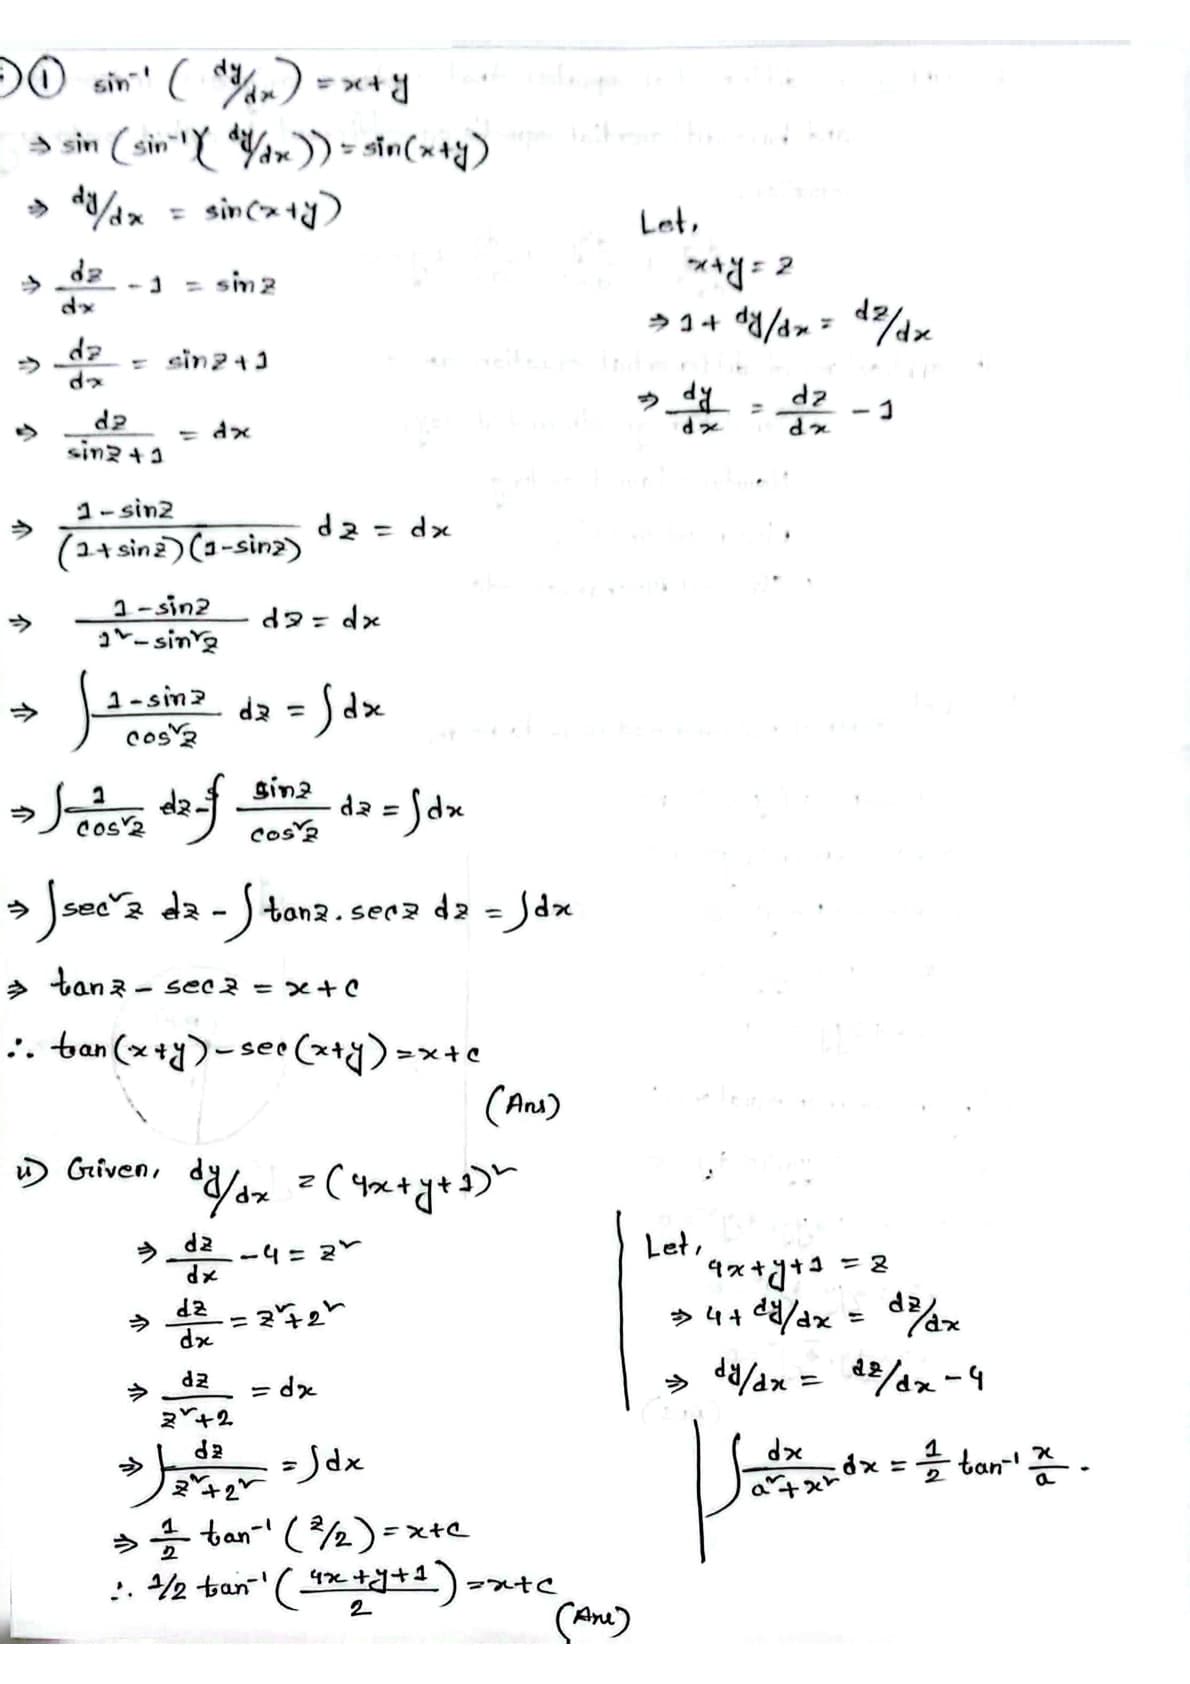 ① sin⁻¹ (dy/dx) = x+y
⇒ sin (sin⁻¹)(dy/dx)) = sin(x+y)
⇒ dy/dx = sin(x+y)
⇒ dz/dx - 1 = sinz
⇒ dz/dx = sinz+1
⇒ dz/(sinz+1) = dx
Let,
x+y = z
⇒ 1+ dy/dx = dz/dx
⇒ dy/dx = dz/dx - 1
⇒ (1-sinz)/((1+sinz)(1-sinz)) dz = dx
⇒ (1-sinz)/(1²-sin²z) dz = dx
⇒ ∫ (1-sinz)/(cos²z) dz = ∫dx
⇒ ∫ 1/(cos²z) dz - ∫ sinz/(cos²z) dz = ∫dx
⇒ ∫sec²z dz - ∫tanz.secz dz = ∫dx
⇒ tanz - secz = x+c
∴ tan(x+y)-sec(x+y)=x+c
(Ans)
ii) Given, dy/dx = (4x+y+1)²
⇒ dz/dx - 4 = z²
⇒ dz/dx = z²+2²
⇒ dz/(z²+2) = dx
⇒ ∫ dz/(z²+2²) = ∫dx
⇒ 1/2 tan⁻¹ (z/2) = x+c
∴ 1/2 tan⁻¹ ((4x+y+1)/2) = x+c
(Ans)
Let,
4x+y+1 = z
⇒ 4+ dy/dx = dz/dx
⇒ dy/dx = dz/dx - 4
∫ dx/(a²+x²) dx = 1/2 tan⁻¹ x/a .